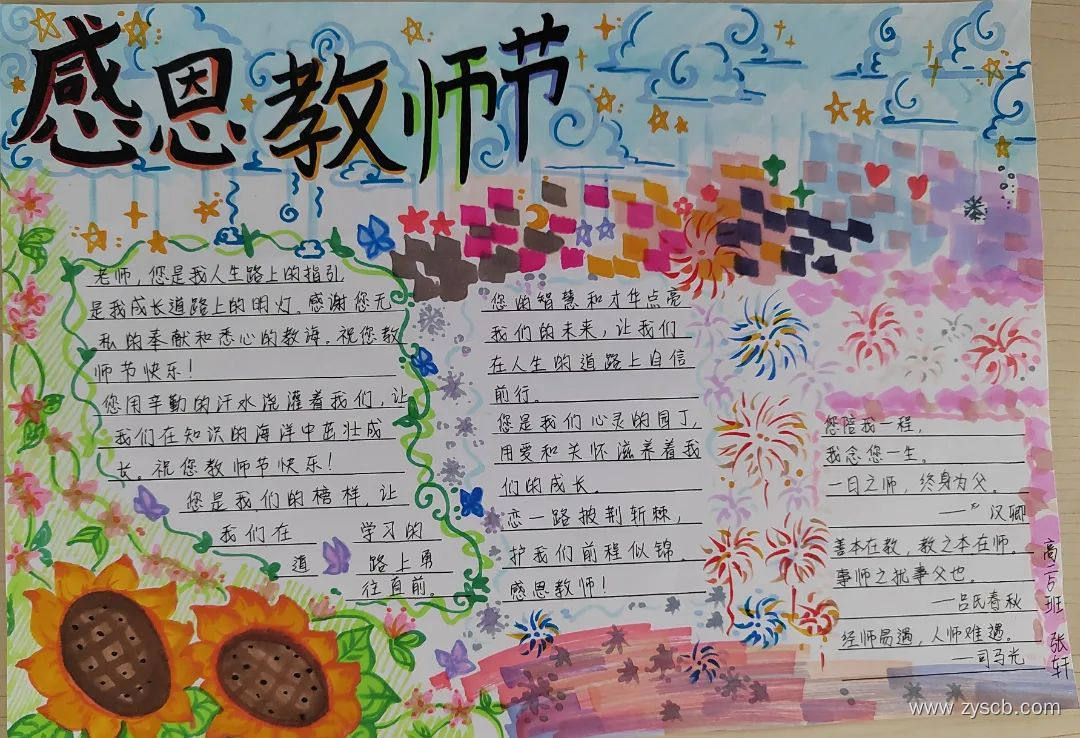 感恩教师节
老师，您是我人生路上的指引
是我成长道路上的明灯。感谢您无
私的奉献和悉心的教诲。祝您教
师节快乐！
您用辛勤的汗水浇灌着我们，让
我们在知识的海洋中茁壮成
长。祝您教师节快乐！
您是我们的榜样，让
我们在 学习的
道 路上勇
往直前。
您的智慧和才华点亮
我们的未来，让我们
在人生的道路上自信
前行。
您是我们心灵的园丁，
用爱和关怀滋养着我
们的成长。
恋一路披荆斩棘，
护我们前程似锦。
感恩教师！
您陪我一程，
我念您一生。
一日之师，终身为父。
汉卿
善本在教，教之本在师。
事师之犹事父也。
—吕氏春秋
经师易遇，人师难遇。
—司马光
班 张轩
www.zyscb.com